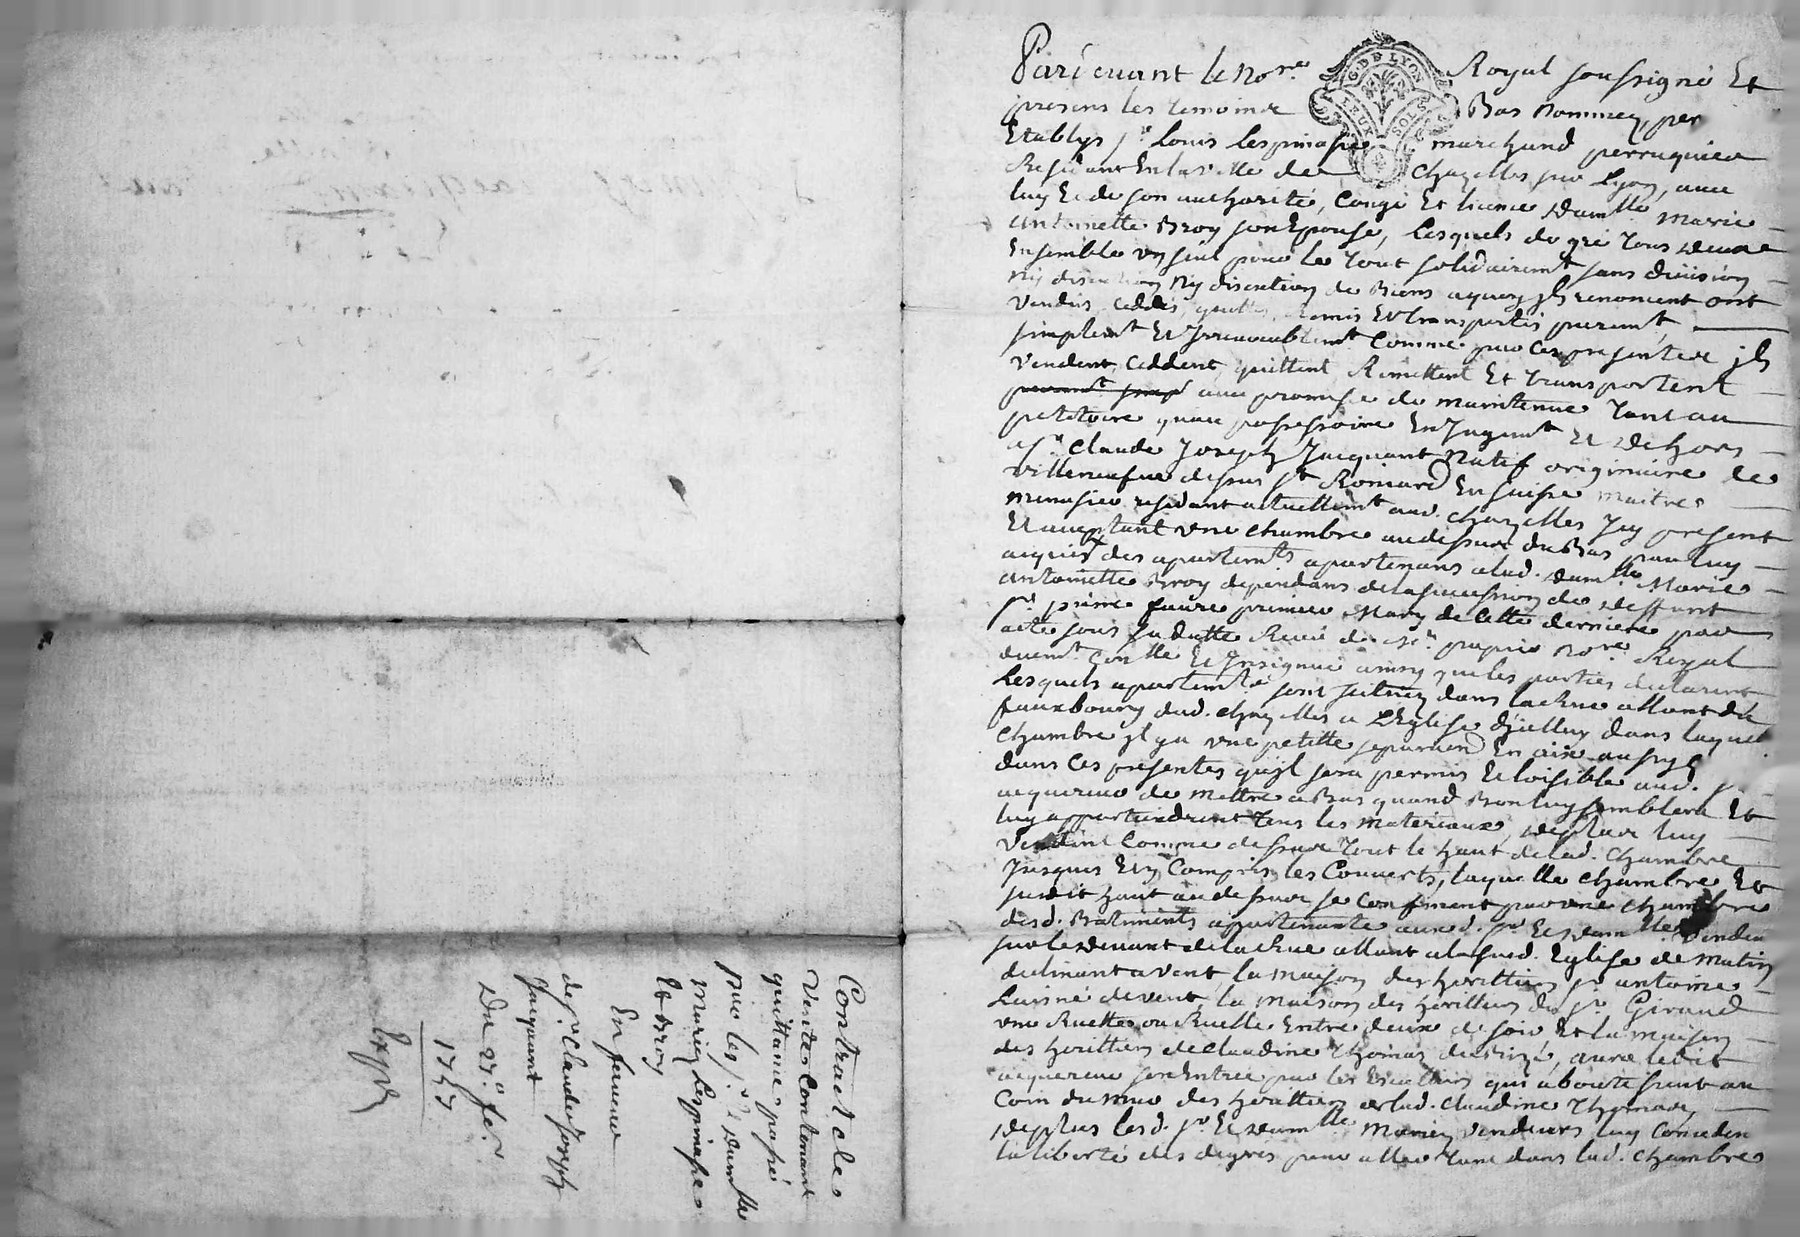 Pardevant le No.re Royal soussigné Et
presens les temoins Bas nommez, par
Etablys s.r Louis Lespinasse marchand perruquier
Residant En la ville de Chazelles sur Lyon, avec
luy Et de son authorité, Congé Et licence dam.lle Marie
antoinette Broy son Epouse, lesquels de gré tous deux
Ensemble un seul pour le tout solidairem.t sans division
ny discution de Biens a quoy jls renoncent ont
Vendus, Ceddés, quittés, Remis Et transportés purem.t
simplem.t Et Irrevocablem.t Comme par Ces presentes jls
Vendent, Ceddent, quittent Remettent Et transportent
avec promesse de maintenue tant au
petitoire qu'au possessoire En Jugem.t Et dehors
a s.r Claude Joseph Jacquant natif originaire de
villeneufve dessus s.t Romard En suisse maitre
menusier residant actuellem.t aud. Chazelles Icy present
Et acceptant une chambre au dessus du Bas par luy
acquis des apartem.ts apartenans a lad. dam.lle Marie
antoinette Broy dependans de la succession de deffunt
s.r faure premier Mary de Cette derniere par
acte sous sa datte Receu de No.re Royal
duem.t Con.llé Et Insignué ainsy que les parties declarent
lesquels apartem.ts sont scituez dans la Rue allant du
fauxbourg dud. Chazelles a L'Eglise d'jcelluy dans laquel
Chambre jl y a une petitte separation En aix aussy
dans Ces presentes qu'jl sera permis Et loisible aud. s.r
acquereur de mettre a Bas quand Bon luy semblera Et
luy appartiendront tous les materiaux, de plus luy
Vendent Comme dessus tout le haut de lad. Chambre
Jusques Et y Compris les Couverts, laquelle chambre Et
susdit haut au dessus se Confinent par une chambre
desd. Batiments apartenante auxd. s.r Et dam.lle Vendeu
sur le devant de la Rue allant a la susd. Eglise de matin
declinant a vent la maison des heritiers s.r antoine
de vent la maison des heritiers de s.r Giraud
une Ruette ou Ruelle Entre deux de soir Et la maison
des heritiers de Claudine Thomas de Bize, aura ledit
acquereur son Entrée par les Escalliers qui aboutissent au
Coin du mur des heritiers de lad. Claudine Thomas,
de plus lesd. s.r Et dam.lle Mariez vendeurs luy Concedent
la liberté des degres pour aller tant dans lad. Chambre
Contract de
Vente Contenant
quittance passé
par les s.r Et dam.lle
mariez Lespinasse
Et Broy
En faveur
de s.r Claude Joseph
Jacquant
Du 27.e fe.r
1757
Exp.é
G. DE LYON
DEUX SOLS